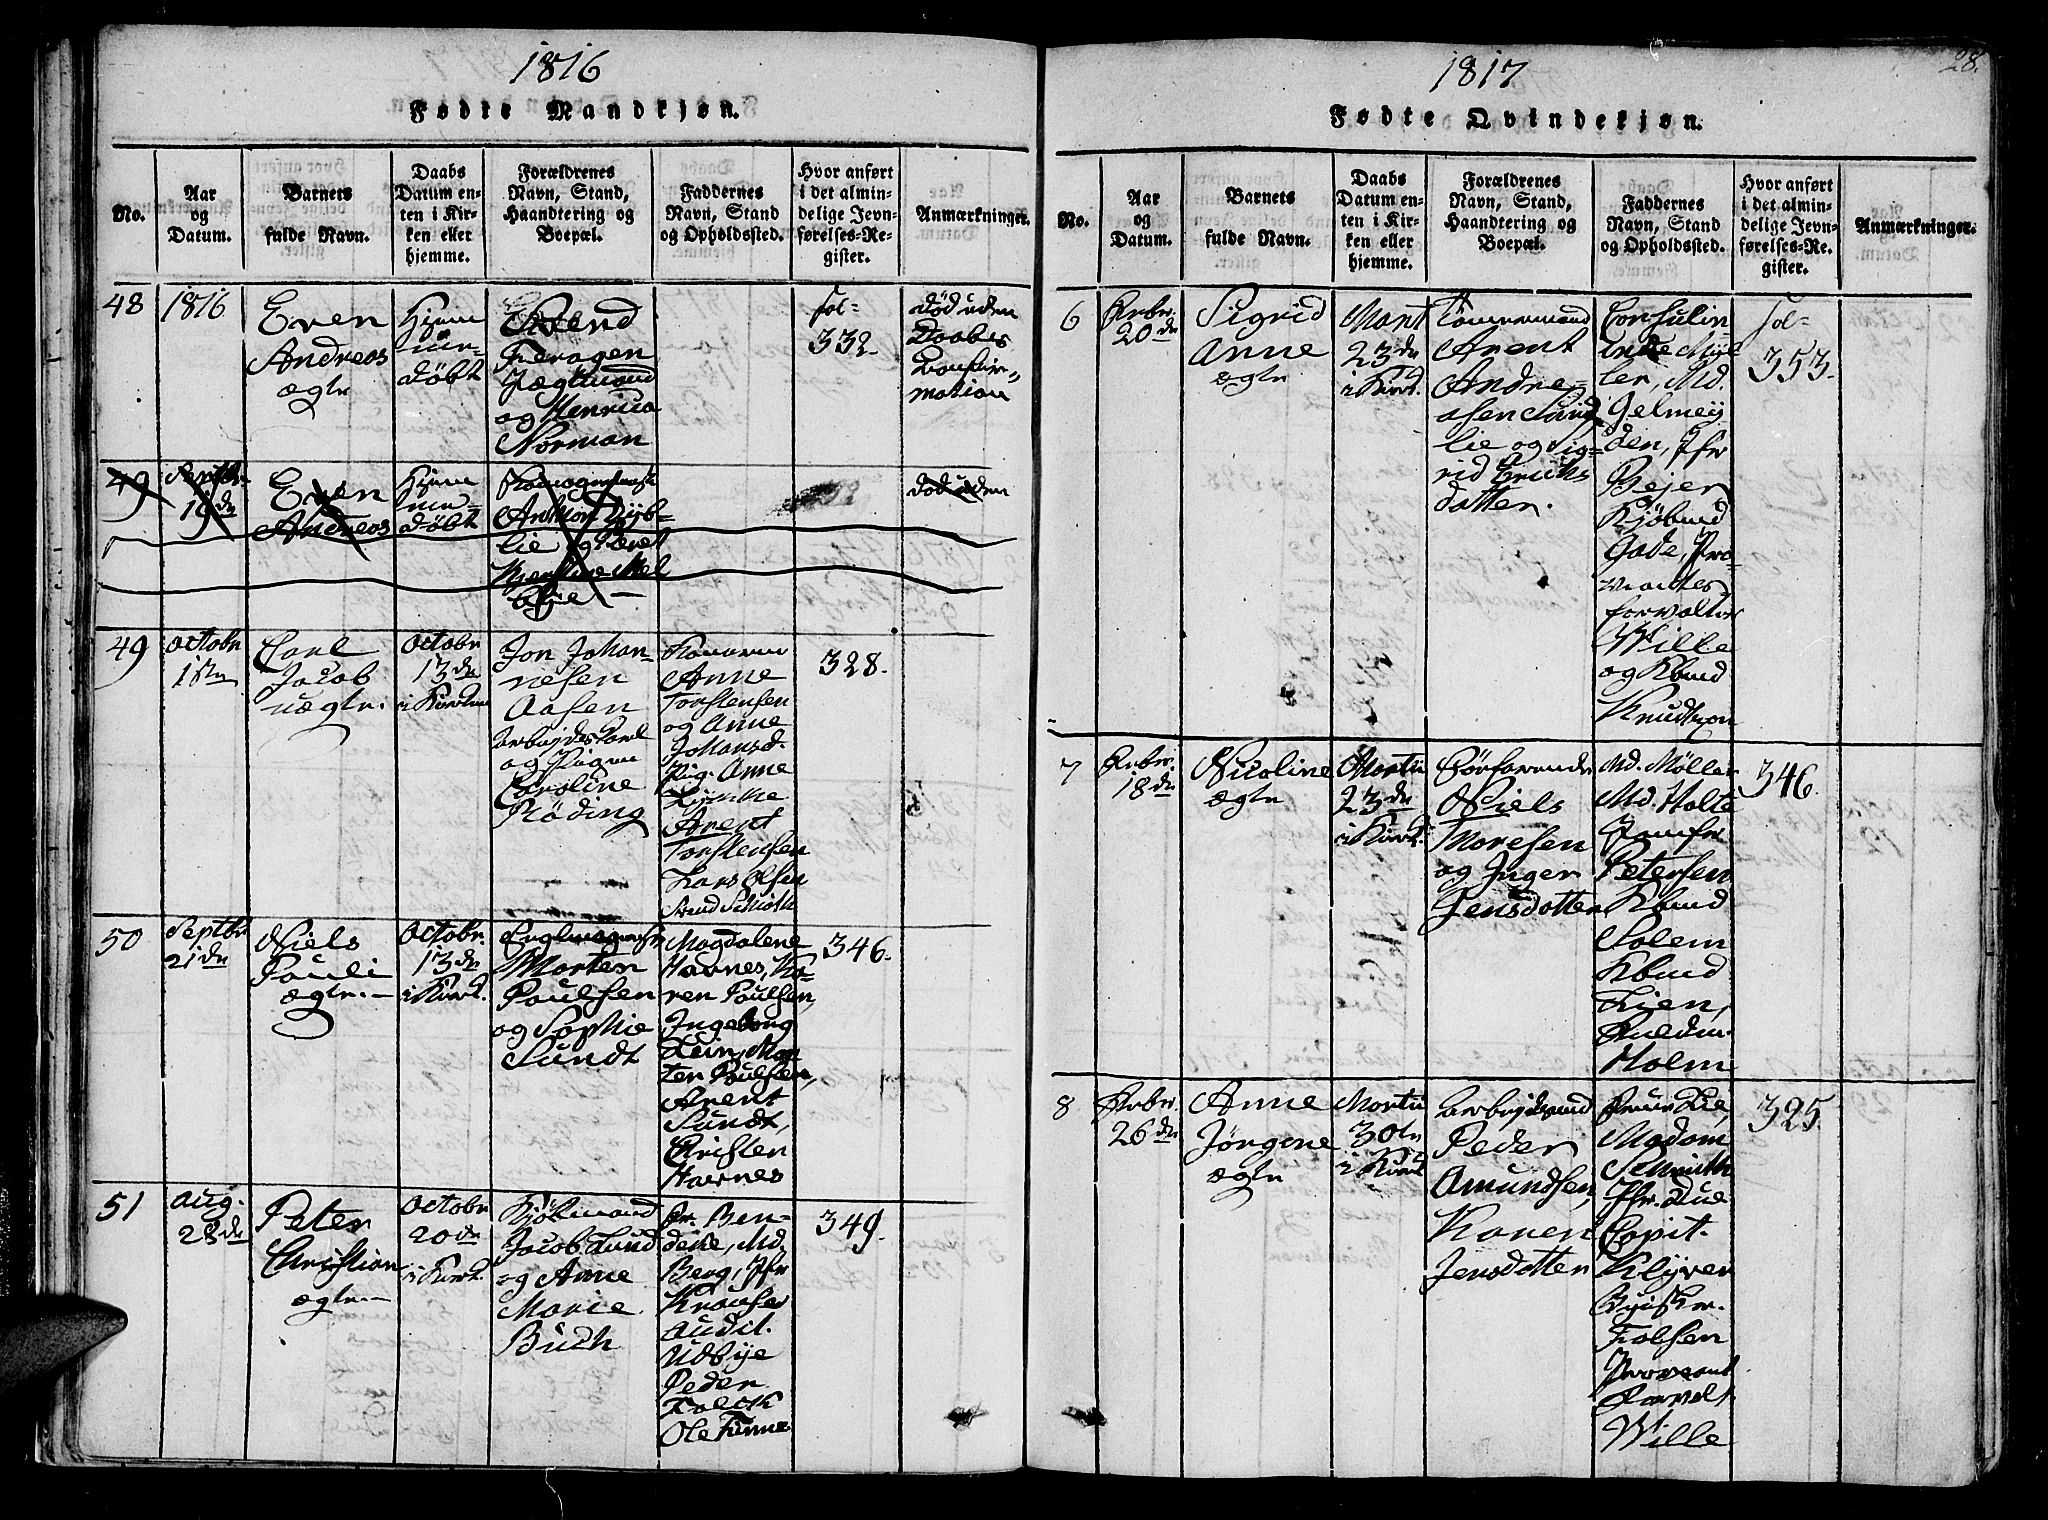 1816
Fødte Mandkjøn.
No.
Aar
og
Datum.
Barnets
fulde Navn.
Daabs
Datum en-
ten i Kir-
ken eller
hjemme.
Forældrenes
Navn, Stand,
Haandtering og
Boepæl.
Faddernes
Navn, Stand
og Opholdssted.
Hvor anført
i det almin-
delige Jevn-
førelses-Re-
gister.
Anmærkninger.
48
1816
Even
Andreas
ægte
Hjeme
døbt
Svend
Feragen
Jægtmand
og Henrica
Norman
fol-
332.
død uden
Daabes
Confir-
mation
49
Septbr
18de
Even
Andreas
Hjeme
døbt
lie og Beret
død uden
49
Octobr
1ste
Carl
Jacob
uægte.
Octobr
13de
i Kirken
Jon Johan-
nesen
Aasen
arbejdskarl
og Pigen
Caroline
Röding
Konerne
Anne
Torstensen
og Anne
Johansd.
Pig. Anne
Lykke
Arent
Torstensen
Lars Olsen
Svend Schiøth
328.
50
Septbr
21de
Niels
Pauli
ægte.-
Octobr.
13de
i Kirk.
Morten
Poulsen
og Sophie
Sundt
Magdalene
Havnes, Ka-
ren Poulsen,
Ingeborg
Lein, Mor-
ten Poulsen,
Arent
Sundt,
Christen
Havnes
346.
51
Aug.
28de
Peter
Christian
ægte.-
Octobr
20de
i Kirk.
Kjøbmand
Jacob Lund
og Anne
Marie
Buch
Fr. Ben-
deke, Md.
Berg, Jfr
Kronfer
Audit.
Udbye
Peder
Falck
Ole Finne
349.
1817
28.
Fødte Qvindekjøn.
No.
Aar
og
Datum.
Barnets
fulde Navn.
Daabs
Datum en-
ten i Kir-
ken eller
hjemme.
Forældrenes
Navn, Stand,
Haandtering og
Boepæl.
Faddernes
Navn, Stand
og Opholdssted.
Hvor anført
i det almin-
delige Jevn-
førelses-Re-
gister.
Anmærkninger.
6
Febr.
20de
Sigrid
Anne
ægte
Mart
23de
i Kirk.
Tömmermand
Arent
Andre-
asen Sund
lie og Sig-
rid Erichs
datter.
Consulin-
ler, Md.
Gelmey
den, Jfr
Bejer
Kjöbmd
Gade, Pro
viantes
forvalter
Wille
og Kbmd
Knudtzon
fol-
353.
7
Febr.
18de
Nicoline
ægte
Martii
23de
i Kirk.
Sörfarende
Niels
Moresen
og Inger
Jensdatter
Md. Møller
Md. Holte
Jomfr
Petersen
Kbmd
Solem
Kbmd
Lien,
Holm
346.
8
Febr.
26de
Anne
Jörgene
ægte
Martii
30te
i Kirk
arbejdsmd
Peder
Amundsen,
Karen
Jensdatter
Frue Lie,
Madam
Schmith
Jfr. Lie
Capit.
Klyver
Byisker.
Folsen
Proviant
Forvalt
Wille
325.